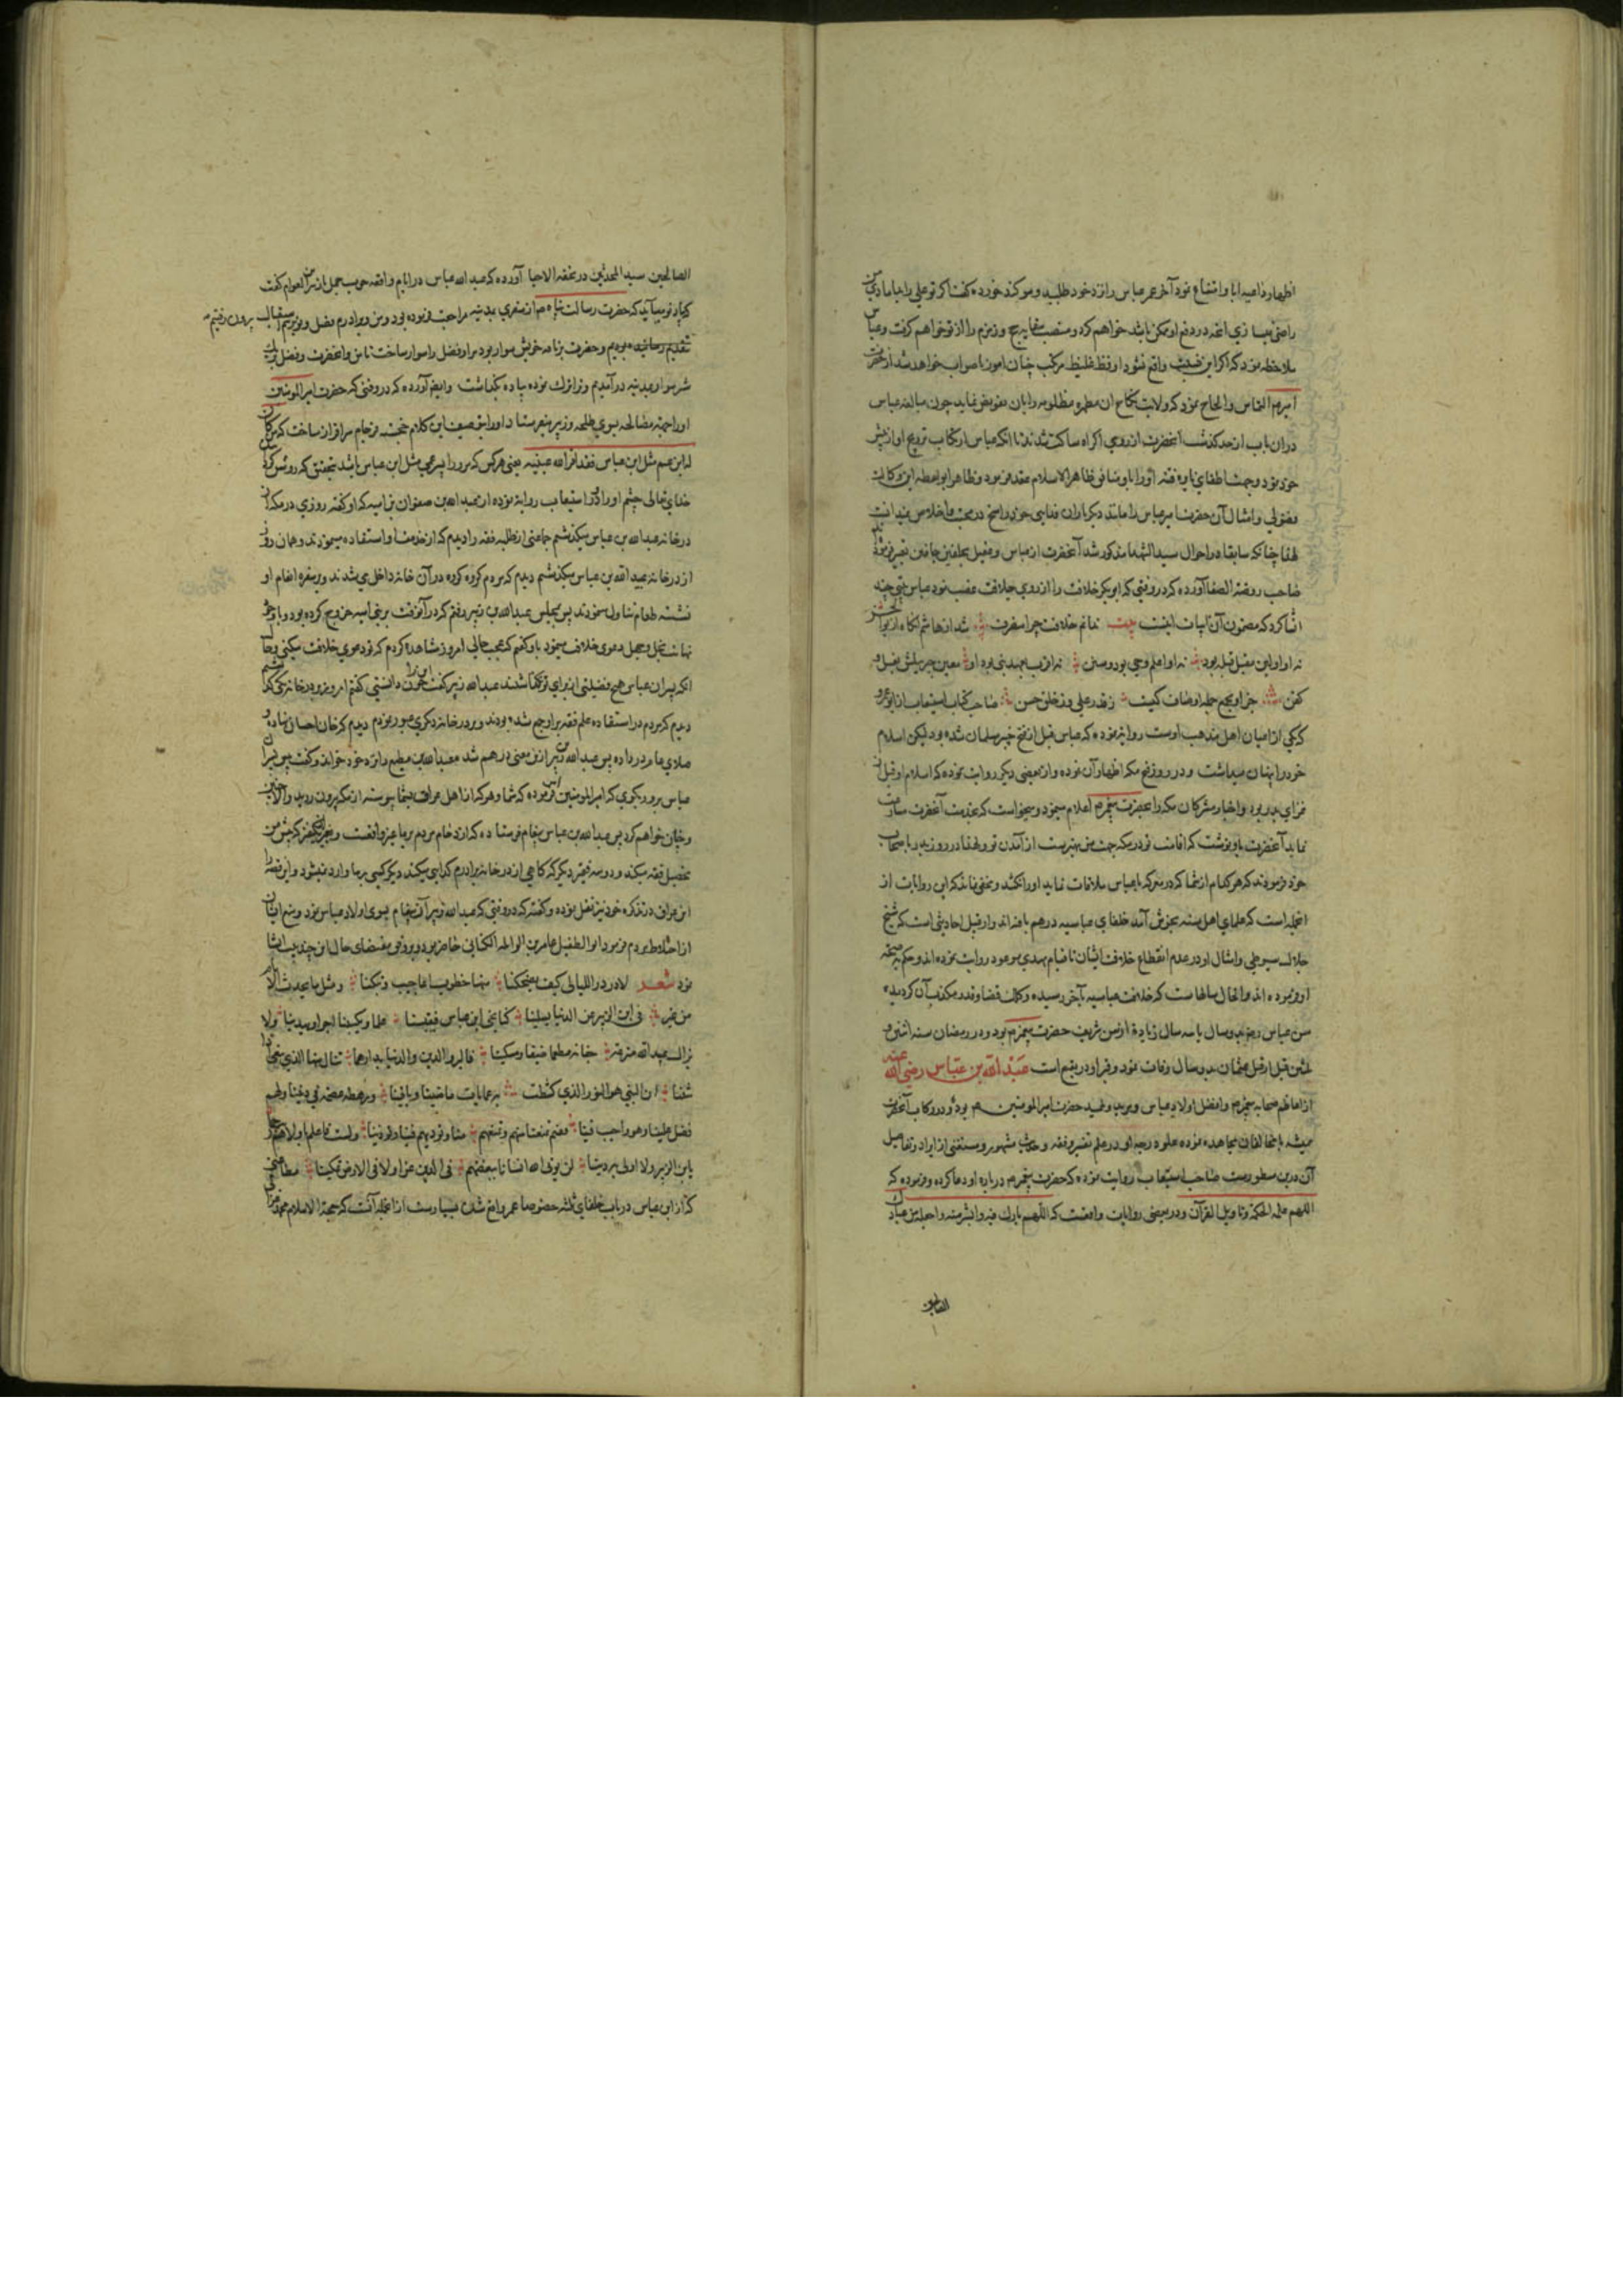 اظهار داعیه ابا و امتناع نمود آخر عمر عباس را نزد خود طلبید و سوگند خورده گفت اگر تو علی را
راضی نسازی آنچه در دفع او ممکن باشد خواهم کرد و منصب سقایه حج و زمزم را از تو خواهم گرفت و عباس
ملاحظه نمود که اگر این واقع نشود او فظ غلیظ مرتکب چنان امور ناصواب خواهد شد از حضرت
امیر م التماس و الحاح نمود که ولایت نکاح ان مطهره مظلومه را بان تفویض نماید چون مبالغه عباس
دران باب از حد گذشت آنحضرت از روی اکراه ساکت شدند تا آنکه عباس ارتکاب تزویج او از پیش
خود نمود و جهت اطفای نایره فتنه او را با و منافق ظاهر الاسلام عقد فرمود و ظاهرا بواسطه این وکالت
فضولی و امثال آن حضرت امیر عباس را مانند دیگر یاران فدایی خود راسخ در محبت و اخلاص نمیدانست
لهذا چنانکه سابقا در احوال سید الشهدا مذکور شد آنحضرت از عباس و عقیل بجلفین جافین تعبیر فرمود
صاحب روضة الصفا آورده که در وقتی که ابوبکر خلافت را از روی خلافت غصب نمود عباس بیتی چند
انشا کرد که مضمون آن ابیات اینست بیت ندانم خلافت چرا منصرف شد از هاشم آنگاه از بوالحسن
نه او اولین مقبل قبله بود نه او اعلم وحی بود و سنن نه اقرب بعهد نبی بود او معین جبریلش بغسل و
کفن جز او مجمع جمله اوصاف کیست ز قدر علی و ز خلق حسن صاحب کتاب استیعاب از ابو عمرو
که یکی از اعیان اهل مذهب اوست روایه نموده که عباس قبل از فتح خیبر مسلمان شده بود لیکن اسلام
خود را پنهان میداشت و در روز فتح مکه اظهار آن نموده و از بعضی دیگر روایت نموده که اسلام او قبل از
غزای بدر بود و اخبار مشرکان مکه را بحضرت پیغمبر م اعلام مینمود و میخواست که بخدمت آنحضرت مسارعت
نماید آنحضرت باو نوشت که اقامت تو در مکه جهت من بهتر است از آمدن تو و لهذا در روز بدر با اصحاب
خود فرمودند که هر کدام از شما که در معرکه با عباس ملاقات نماید او را نکشد و مخفی نماند که این روایات از
انجمله است که علمای اهل سنه بخوش آمد خلفای عباسیه درهم بافته اند و از قبیل احادیثی است که شیخ
جلال سیوطی و امثال او در عدم انقطاع خلافت ایشان تا قیام مهدی موعود روایت نموده اند و حکم بصحه
او نموده اند و الحال سالهاست که خلافت عباسیه بآخر رسیده و کلک قضا و قدر مکذب آن گردیده
سن عباس رض بدو سال یا سه سال زیاده از سن شریف حضرت پیغمبر م بود و در رمضان سنه اثنین و
ثلثین قبل از قتل عثمان بدو سال وفات نمود و قبر او در بقیع است عَبْدُ اللّٰه بن عبّاس رضی اللّٰه عنه
از اعاظم صحابه پیغمبر م و افضل اولاد عباس و مرید و تلمیذ حضرت امیر المومنین م بود و در رکاب آنحضرت
همیشه با مخالفان مجاهده نموده علو درجه او در علم تفسیر و فقه و حدیث مشهور و مستغنی از ایراد و تفاصیل
آن درین سطور است صاحب استیعاب روایت نموده که حضرت پیغمبر م درباره او دعا کرده و فرموده که
اللهم علمه الحکمة و تاویل القرآن و در بعضی روایات واقعست که اللهم بارک فیه و انشر منه و اجعله من عبادک
الصالحین
الصالحین سید المحدثین در تحفه الاحبا آورده که عبد الله عباس در ایام واقعه حرب جمل از زبیر بن العوام گفت
که یاد تو میآید که حضرت رسالت پناه م از سفری بمدینه مراجعت فرموده بود و من و برادرم فضل و تو باستقبال بیرون رفتیم
تقدیم رسانیده بودیم و حضرت بر ناقه خویش سوار بود مرا و فضل را سوار ساخت تا من و انحضرت و فضل بریک
شتر سوار بمدینه درآمدیم و ترا ترک نموده پیاده بگذاشت و ایضا آورده که در وقتی که حضرت امیر المومنین
او را جهة مصالحه بسوی طلحه و زبیر میفرستاد او را بتوصیف این کلام خجسته فرجام سرافراز ساخت که من کان
له ابن عم مثل ابن عباس فقد اقر الله عینیه یعنی هر کس که مر او را پسر عمی مثل ابن عباس باشد بتحقیق که روشن کرده
خدای تعالی چشم او را و در استیعاب روایة نموده از عبد الله بن صفوان بن امیه که او گفته روزی در مکه از
در خانه عبد الله بن عباس میگذشتم جماعتی از طلبه فقه را دیدم که از خدمت او استفاده مینمودند و همان روز
از در خانه عبید الله بن عباس میگذشتم دیدم که مردم گروه گروه در آن خانه داخل می شدند و بر سفره انعام او
نشسته طعام تناول مینمودند پس بمجلس عبد الله بن زبیر رفتم که در آنوقت بر بنی امیه خروج کرده بود و با وجود
نهایت بخل و جهل دعوی خلافت مینمود باو گفتم که عجب حالی امروز مشاهده کردم که تو دعوی خلافت میکنی و حال
آنکه پسران عباس هیچ فضیلتی از برای تو نگذاشتند عبد الله زبیر گفت این را چون دانستی گفتم امروز بدر خانه یکی گذشتم
دیدم که مردم در استفاده علم فقه بر او جمع شده بودند و بر در خانه دیگری عبور نمودم دیدم که خان احسان نهاده و
صلای عام در داده پس عبد الله بن زبیر ازین معنی درهم شد و عبد الله بن مطیع را نزد خود خواند و گفت پیش پسران
عباس برو و بگوی که امیر المومنین فرموده که شما و هر که از اهل عراق بشما پیوسته از مکه بیرون روید و الا چنین
و چنان خواهم کرد پس عبد الله بن عباس پیغام فرستاده که ازدحام مردم بر ما غیر واقعست
تحصیل فقه میکند و دو سه فقیر دیگر که گاهی از در خانه برادرم گدایی میکند دیگر کسی بر ما وارد نمیشود و این قصه را
ابن عراق در تذکره خود نیز نقل نموده و گفته که در وقتی که عبد الله زبیر آن پیغام بسوی اولاد عباس نمود و منع ایشان
از اختلاط مردم فرمود ابو الطفیل عامر بن الواثله الکنانی حاضر بود و بر وفق مقتضای حال این چند بیت انشا
نمود شعر لا در در اللیالی کیف یضحکنا منها خطوب اعاجیب و تبکینا و مثل ما یحدث الایام
من غیر فی ابن الزبیر عن الدنیا یسلینا کنا نجی ابن عباس فیقبسنا علما و یکسبنا اجرا و یهدینا ولا
یزال عبید الله مترعة جفانه مطعما ضیفا و مسکینا فالبر و الدین و الدنیا بدارهما ننال منها الذی نبغی اذا
شئنا ان النبی هو النور الذی کشطت به عمایات ماضینا و باقینا و رهطه عصمة فی دیننا و لهم
فضل علینا و حق واجب فینا ففیم تمنعنا منهم و تمنعهم منا و تؤذیهم فینا و تؤذینا و لست فاعلم اولاهم
یا بن الزبیر ولا اولی به دینا لن یؤتی الله انسانا ببغضهم فی الدین عزا ولا فی الارض تمکینا مطاعنی
که از ابن عباس در باب خلفای ثلثه خصوصا عمر واقع شدن بسیارست از انجمله آنست که حجة الاسلام محمد غزالی